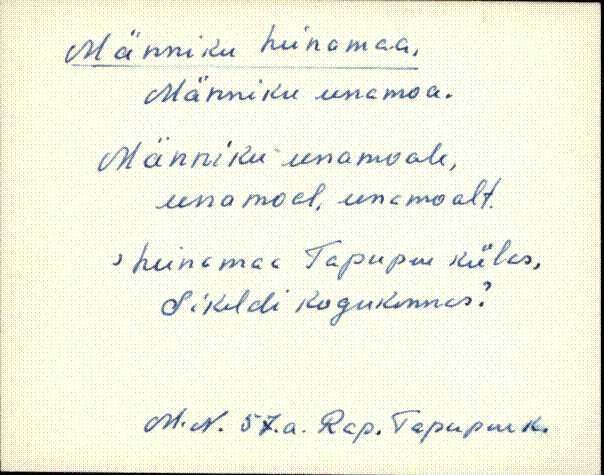 Männiku heinamaa.
Männiku einamoa.
Männiku einamoale,
einamoel, einamoalt.
› heinamaa Tapupere külas,
Sikeldi kogukonnas?
M.N. 57.a. Rap. Tapupere k.